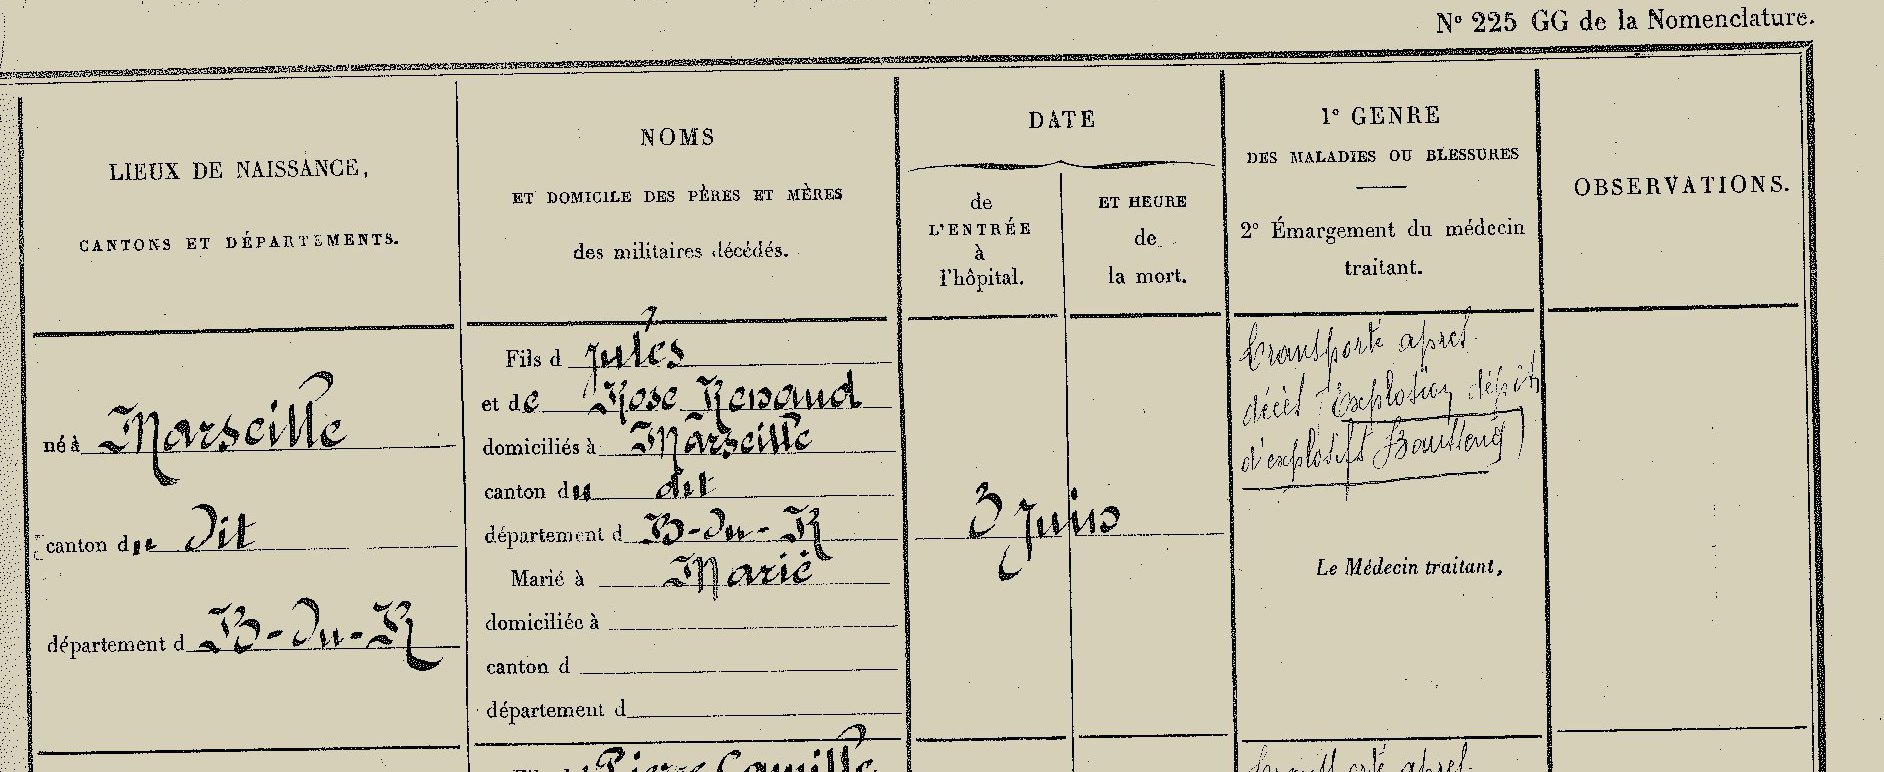 N° 225 GG de la Nomenclature.
LIEUX DE NAISSANCE,
CANTONS ET DÉPARTEMENTS.
NOMS
ET DOMICILE DES PÈRES ET MÈRES
des militaires décédés.
DATE
de
L'ENTRÉE
à
l'hôpital.
ET HEURE
de
la mort.
1° GENRE
DES MALADIES OU BLESSURES
2° Émargement du médecin
traitant.
OBSERVATIONS.
né à Marseille
canton du dit
département d B-du-R
Fils d Jules
et de Rose Renaud
domiciliés à Marseille
canton du dit
département d B-du-R
Marié à Marié
domiciliée à
canton d
département d
3 Juin
Transporté après
décès Explosion dépôt
d'explosifs
Le Médecin traitant,
Pierre Camille
après